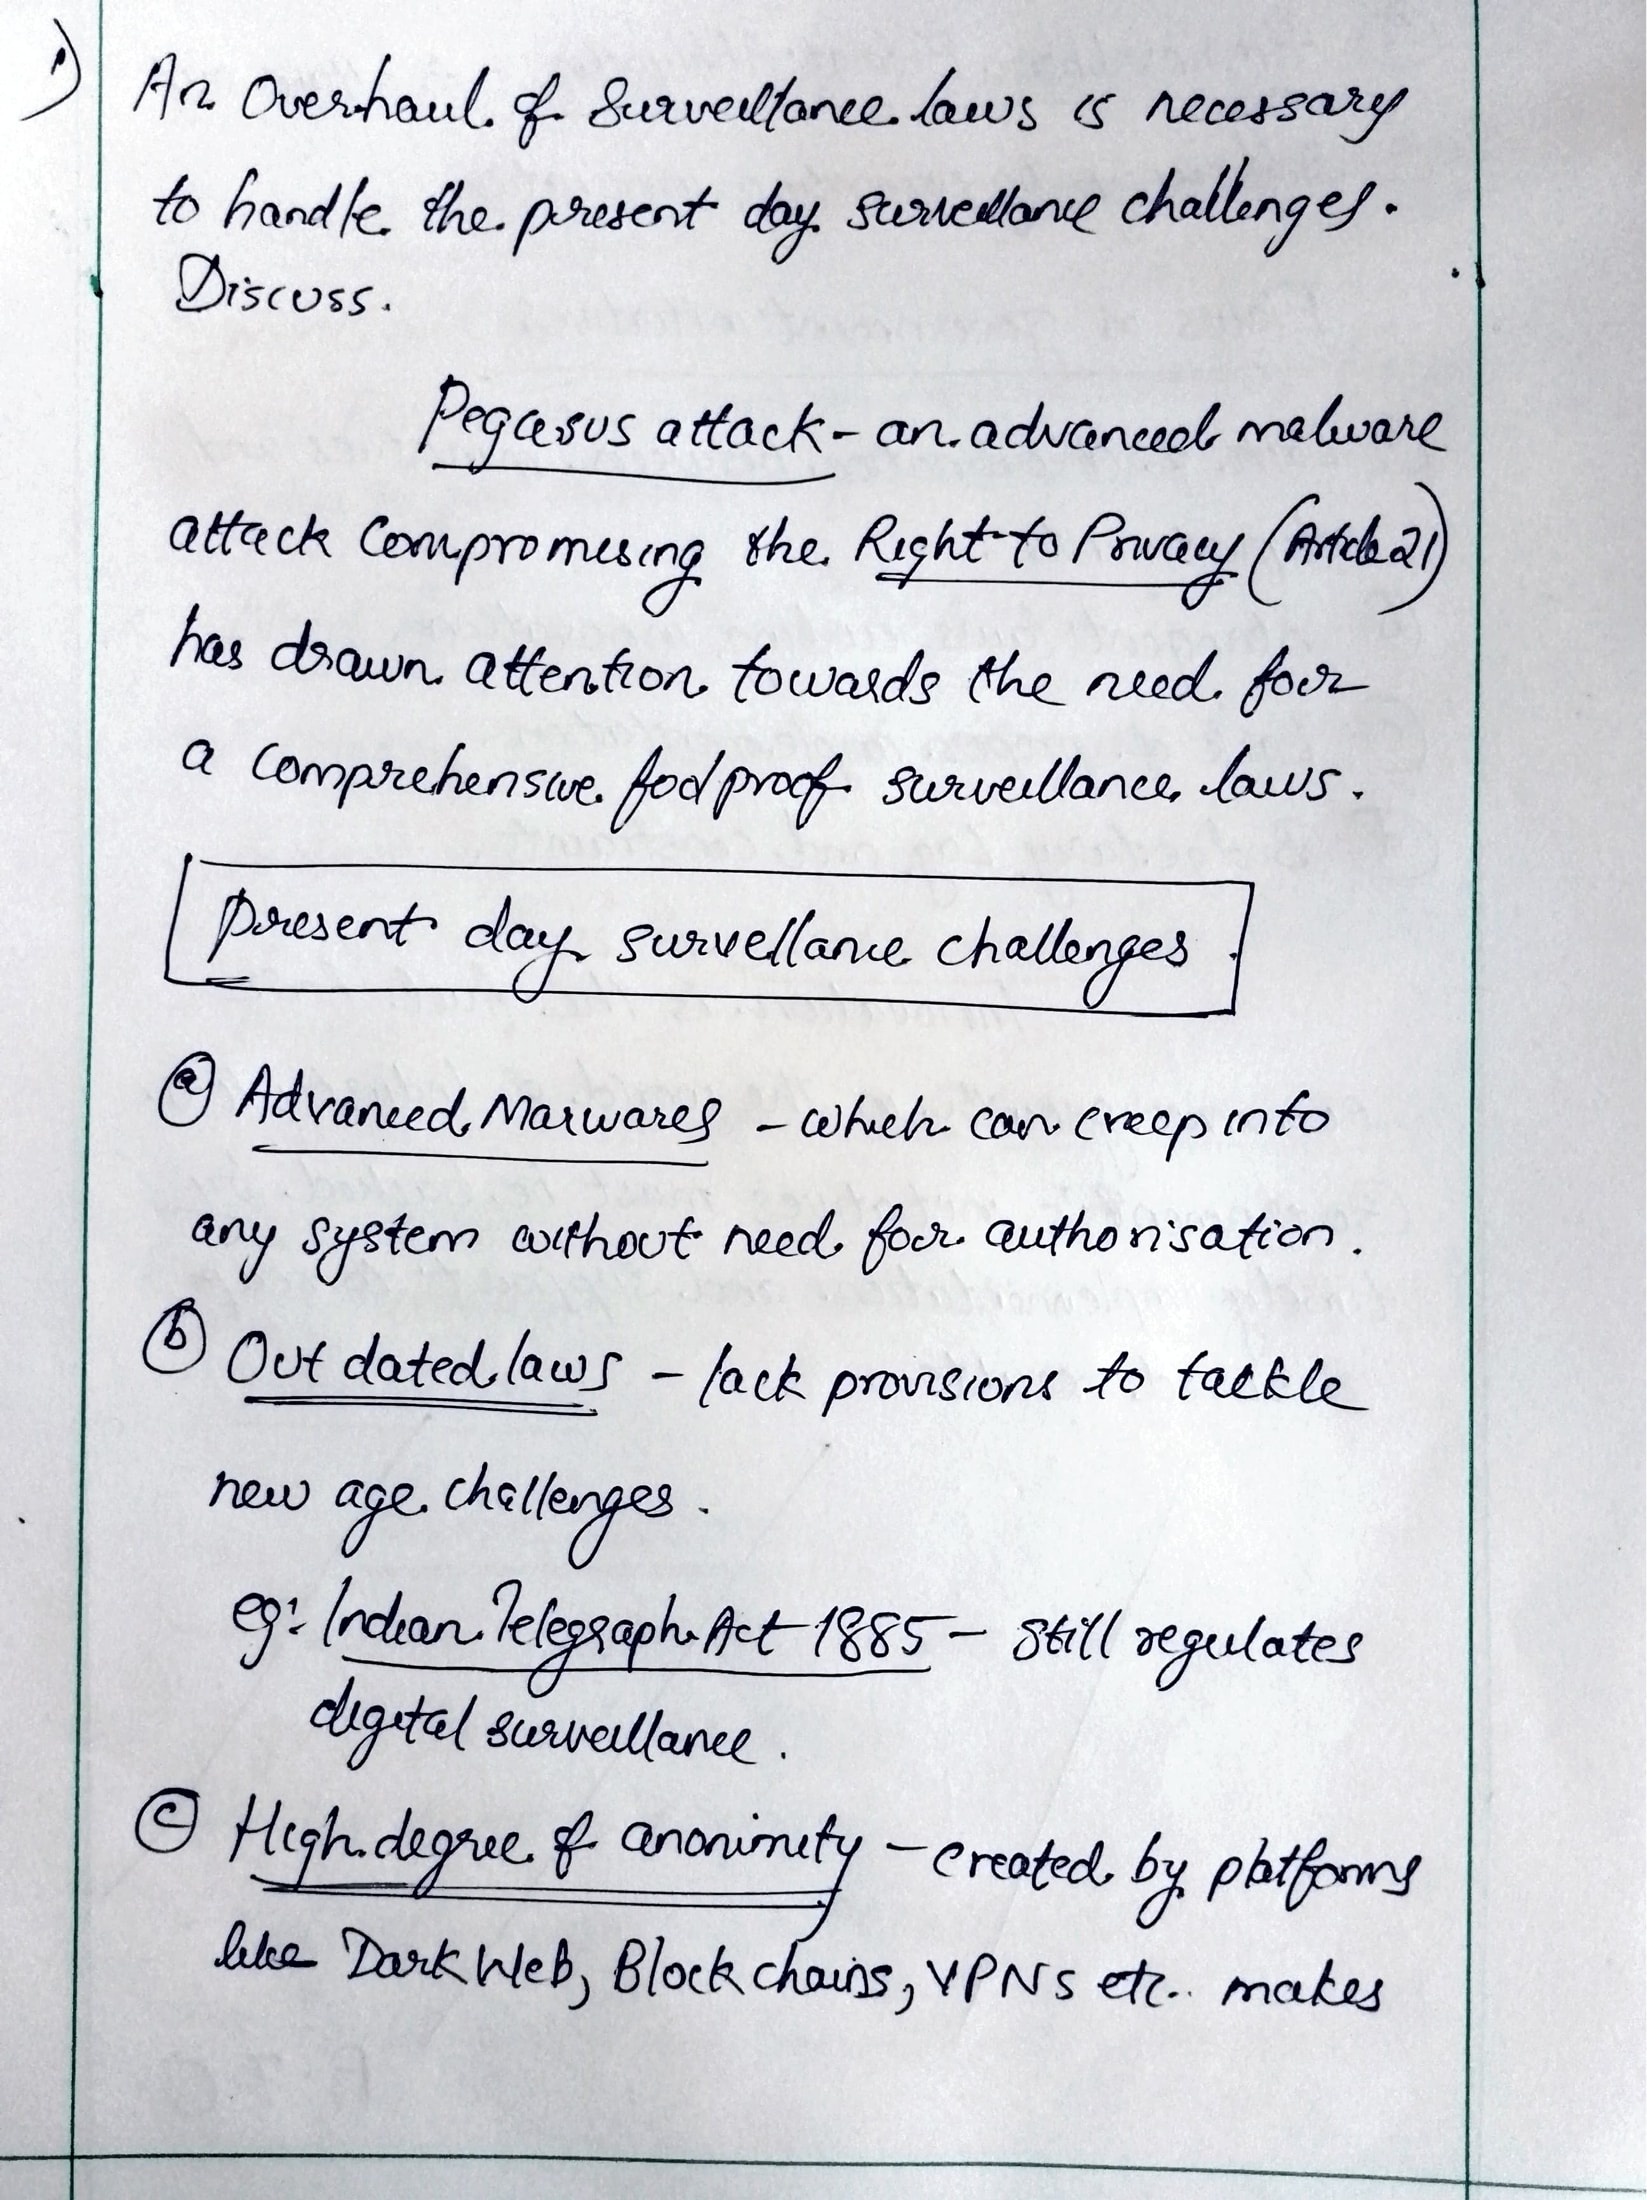 1)
An Overhaul of Surveillance laws is necessary
to handle the present day surveillance challenges.
Discuss.
Pegasus attack - an advanced malware
attack compromising the Right to Privacy (Article 21)
has drawn attention towards the need for
a comprehensive foolproof surveillance laws.
Present day survellance challenges.
(a) Advanced Marwares - which can creep into
any system without need for authorisation.
(b) Out dated laws - lack provisions to tackle
new age challenges.
eg: Indian Telegraph Act 1885 - still regulates
digital surveillance.
(c) High degree of anonimity - created by platforms
like Dark Web, Block chains, VPNs etc.. makes